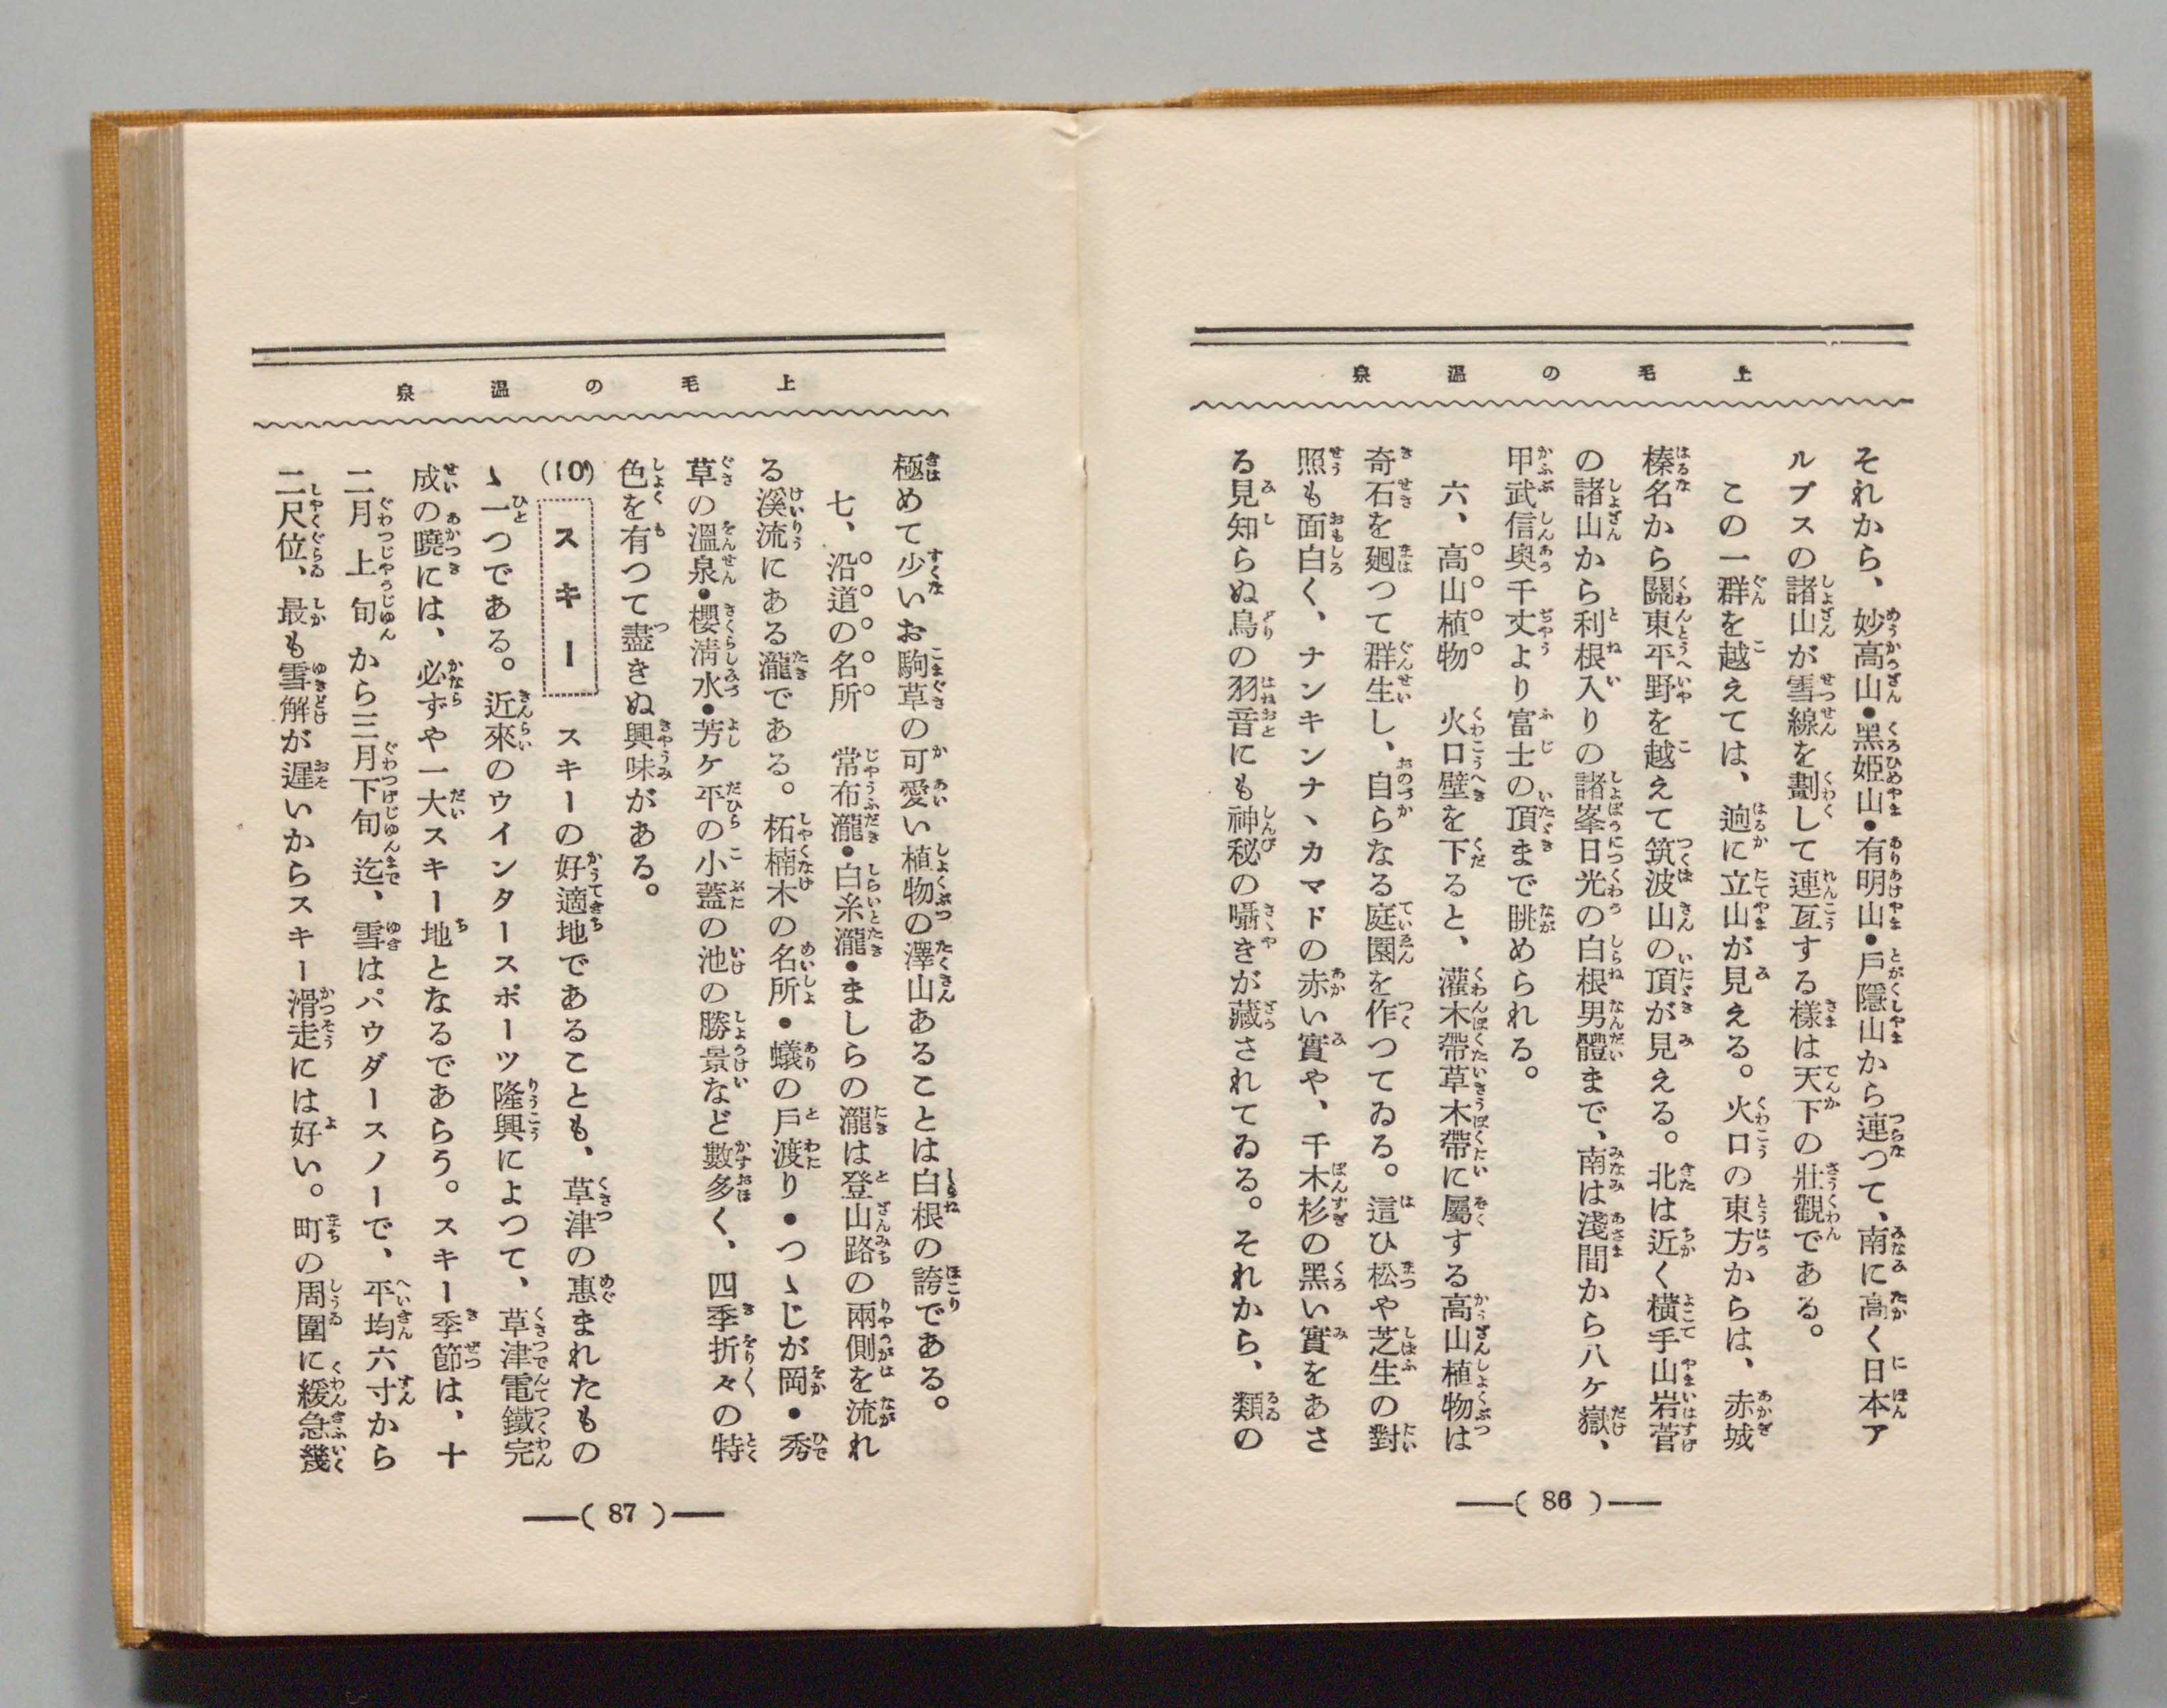 上毛の温泉
それから、妙高山•黑姬山•有明山•戶隱山から連つて、南に高く日本ア
ルプスの諸山が雪線を劃して連亙する樣は天下の壯觀である。
この一群を越えては、逈に立山が見える。火口の東方からは、赤城
榛名から關東平野を越えて筑波山の頂が見える。北は近く橫手山岩菅
の諸山から利根入りの諸峯日光の白根男體まで、南は淺間から八ヶ嶽、
甲武信奧千丈より富士の頂まで眺められる。
六、高山植物　火口壁を下ると、灌木帶草木帶に屬する高山植物は
奇石を廻つて群生し、自らなる庭園を作つてゐる。這ひ松や芝生の對
照も面白く、ナンキンナ、カマドの赤い實や、千木杉の黑い實をあさ
る見知らぬ鳥の羽音にも神秘の囁きが藏されてゐる。それから、類の
—( 86 )—
上毛の温泉
極めて少いお駒草の可愛い植物の澤山あることは白根の誇である。
七、沿道の名所　常布瀧•白糸瀧•ましらの瀧は登山路の兩側を流れ
る溪流にある瀧である。柘楠木の名所•蟻の戶渡り•つゝじが岡•秀
草の溫泉•櫻淸水•芳ヶ平の小蓋の池の勝景など數多く、四季折々の特
色を有つて盡きぬ興味がある。
(10) スキー　スキーの好適地であることも、草津の惠まれたもの
ゝ一つである。近來のウインタースポーツ隆興によつて、草津電鐵完
成の曉には、必ずや一大スキー地となるであらう。スキー季節は、十
二月上旬から三月下旬迄、雪はパウダースノーで、平均六寸から
二尺位、最も雪解が遲いからスキー滑走には好い。町の周圍に緩急幾
—( 87 )—